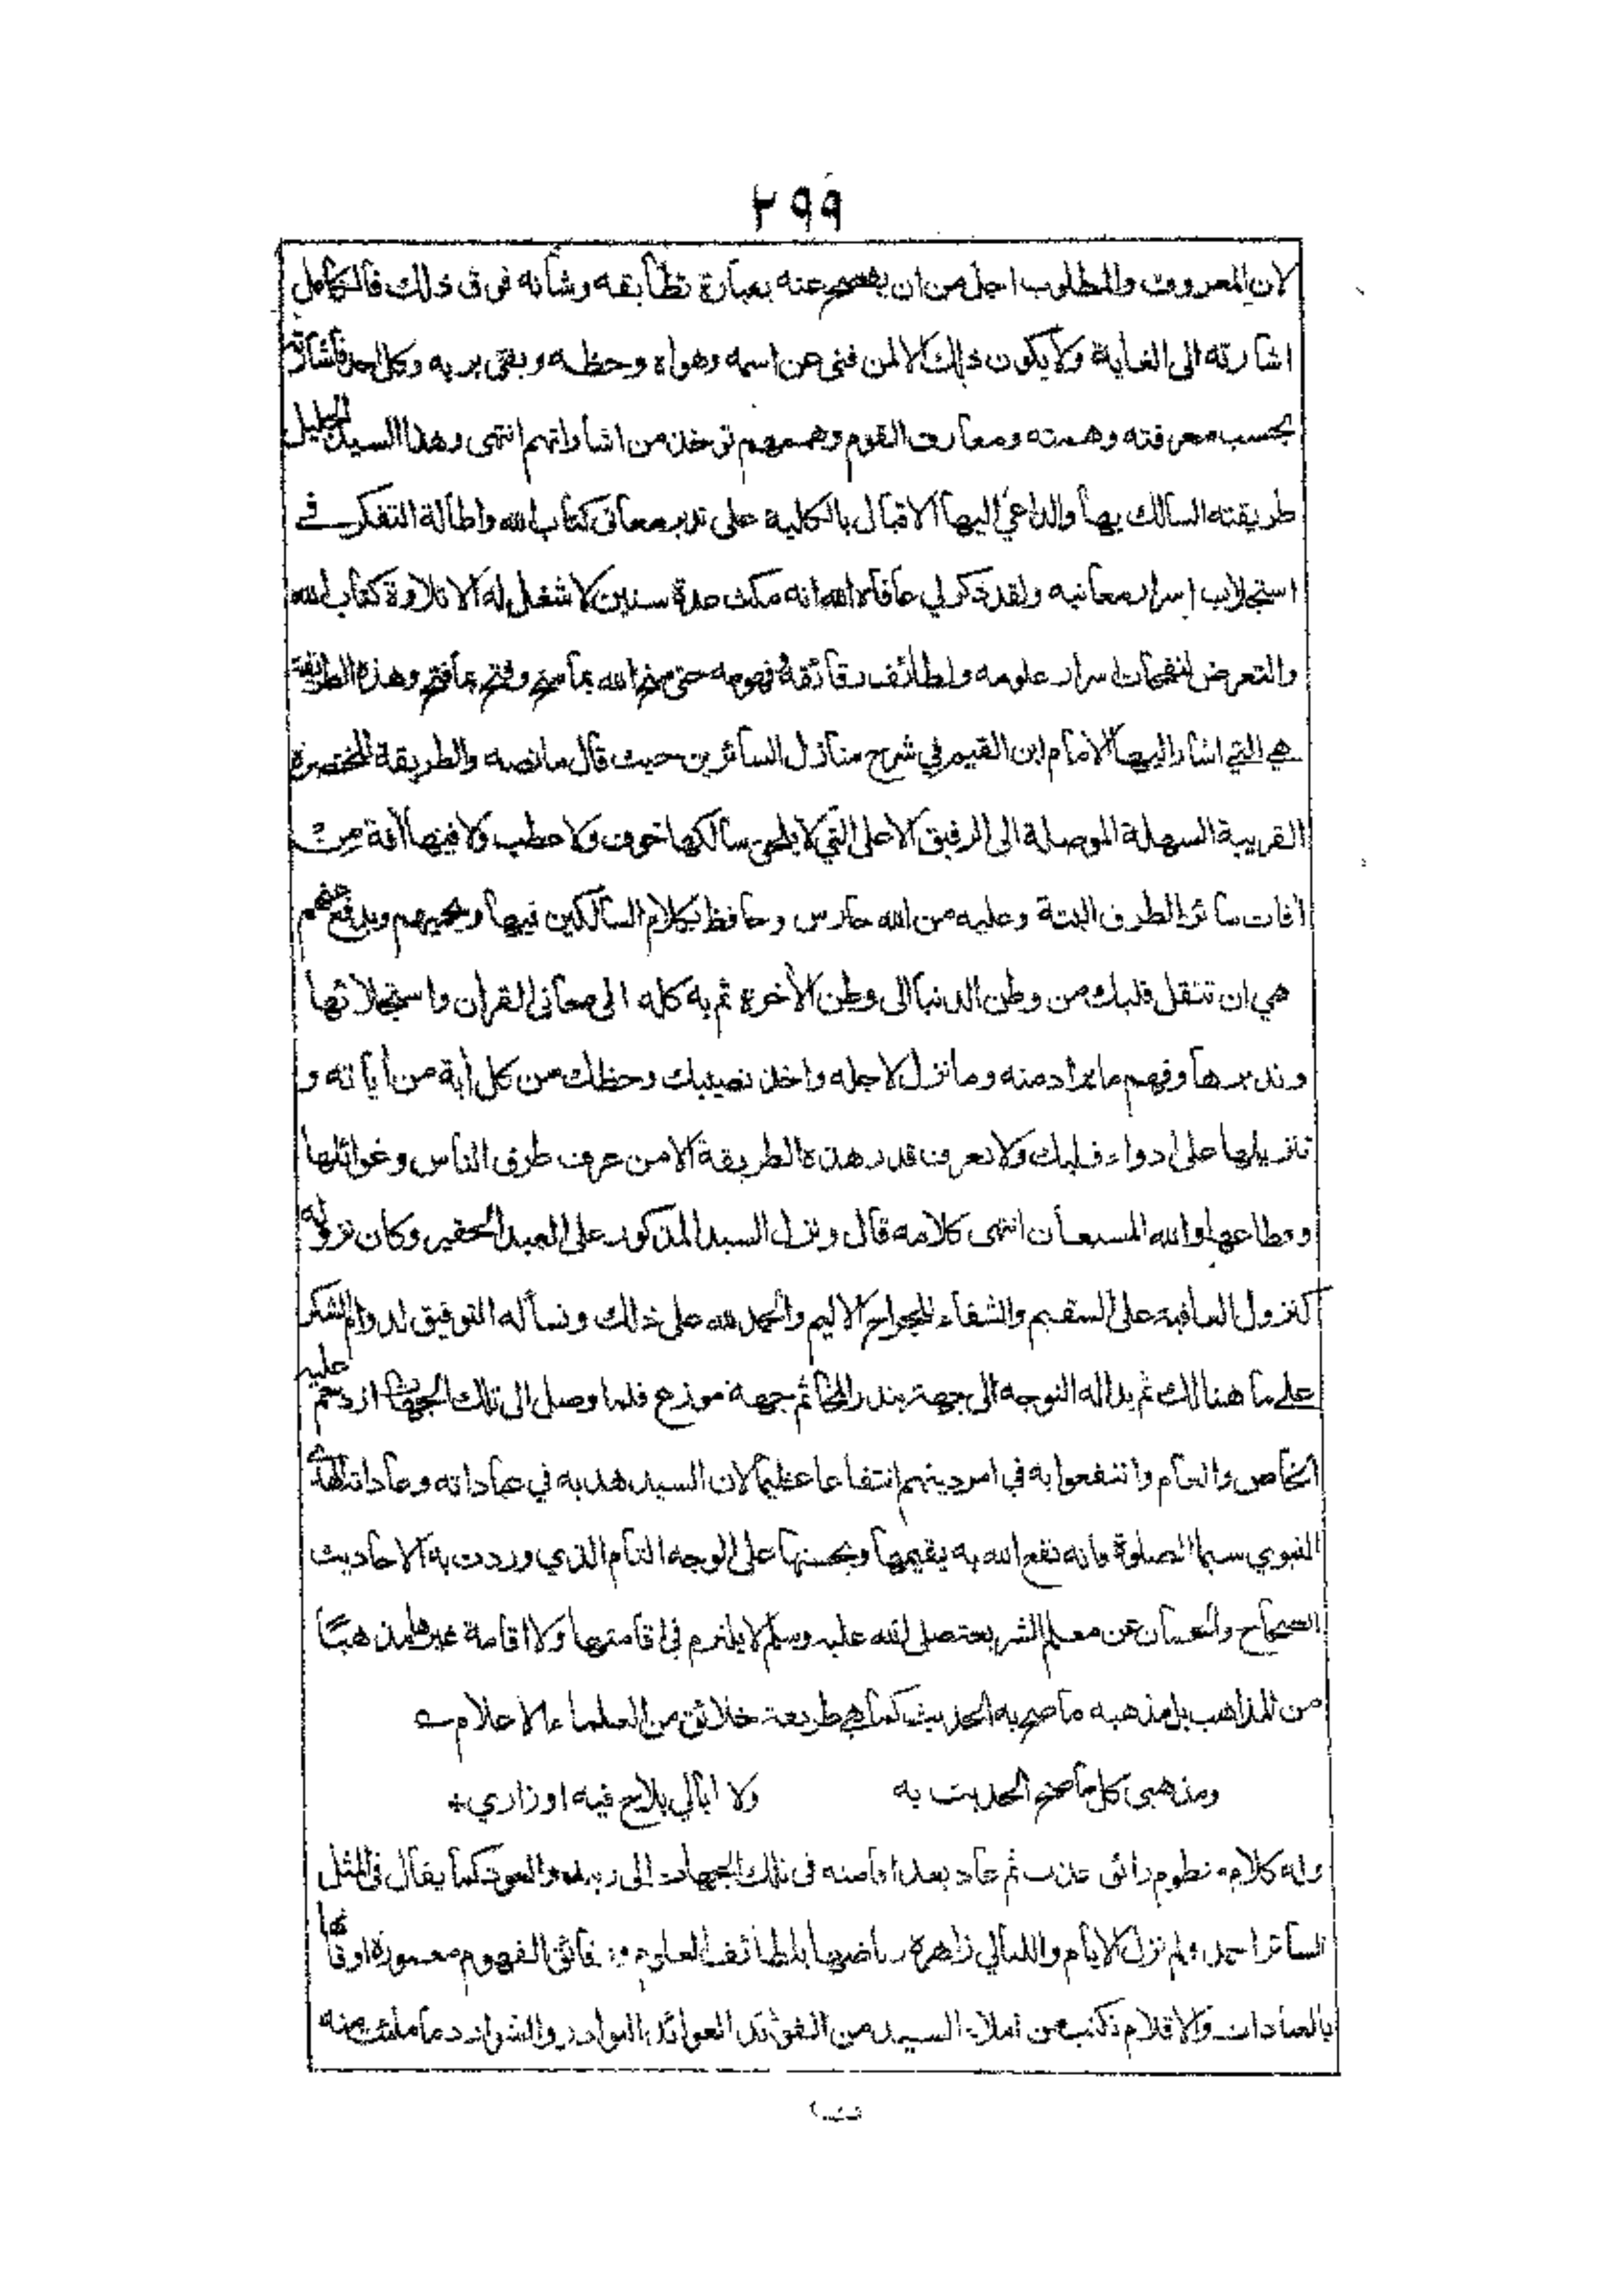 ٢٩٩
لان المعروف والمطلوب اجل من ان يفصح عنه بعبارة تطابقه وشأنه فوق ذلك فالكامل
اشارته الى الغاية ولا يكون ذلك الا لمن فنى عن اسمه وهواه وحظه وبقى بربه وكل احد فاشارته
بحسب معرفته وهمته ومعارف القوم وهممهم توخذ من اشاراتهم انتهى وهذا السيد الجليل
طريقته السالك بها والداعي اليها الاقبال بالكلية على تدبر معانى كتاب الله واطالة التفكر في
استجلاب اسرار معانيه ولقد ذكر لي عافاه الله انه مكث مدة سنين لا شغل له الا تلاوة كتاب الله
والتعرض لنفحات اسرار علومه ولطائف رقائقه وفهومه حتى منح الله بما منح وفتح بما فتح وهذه الطريقة
هي التي اشار اليها الامام ابن القيم في شرح منازل السائرين حيث قال ما نصه والطريقة المختصرة
القريبة السهلة الموصلة الى الرفيق الاعلى التي لا يلحق سالكها خوف ولا عطب ولا فيها آفة من
افات سائر الطرق البتة وعليه من الله حارس وحافظ يكلأ السالكين فيها ويحميهم ويدفع عنهم
هي ان تنتقل قلبك من وطن الدنيا الى وطن الأخرة ثم به كله الى معانى القران واستجلائها
وتدبرها وفهم ما يراد منه وما نزل لاجله واخذ نصيبك وحظك من كل اية من أياته و
تنزيلها على ادواء قلبك ولا تعرف قدر هذه الطريقة الا من عرف طرق الناس وغوائلها
وقطاعها والله المستعان انتهى كلامه قال ونزل السيد المذكور على العبد الحقير وكان نزوله
كنزول العافية على السقيم والشفاء للجوارح الاليم والحمد لله على ذلك ونسأله التوفيق لدوام الشكر
على ما هنالك ثم بدا له التوجه الى جهة بندر المخا ثم جهة موزع فلما وصل الى تلك الجهات ازدحم عليه
الخاص والعام وانتفعوا به في امر دينهم انتفاعا عظيما لان السيد هديه في عباداته وعاداته الهدى
النبوي سيما الصلوة فانه نفع الله به يقيمها ويحسنها على الوجه التام الذي وردت به الاحاديث
الصحاح والحسان عن معلم الشريعة صلى الله عليه وسلم لا يلتزم في اقامتها ولا اقامة غيرها مذهبا
من المذاهب بل مذهبه ما صح به الحديث كما هي طريقة خلائق من العلماء الاعلام
ومذهبى كل ما صح الحديث به ولا ابالي بلاح فيه او زاري
وله كلام منظوم رائق عذب ثم عاد بعد اقامته فى تلك الجهات الى زبيد والعود كما يقال في المثل
السائر احمد ولم تزل الايام والليالي زاهرة رياضها بلطائف العلوم ودقائق الفهوم معمورة اوقاتها
بالعبادات والاقلام تكتب من املاء السيد من الفوائد العوائد النوادر والشوارد ما ملئت منه